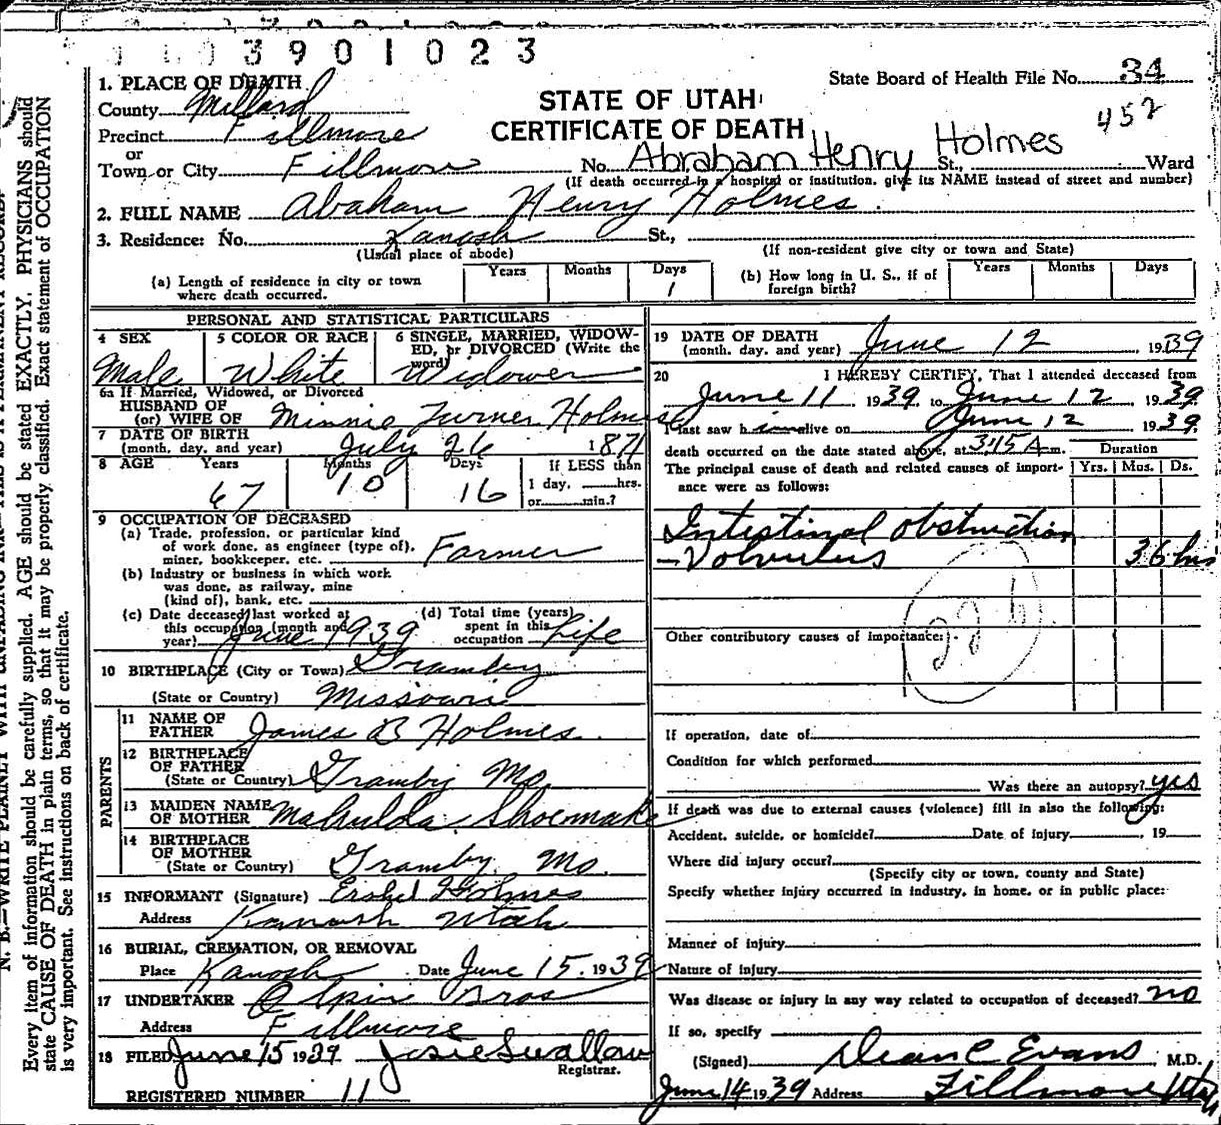 3901023
State Board of Health File No. 34
452
STATE OF UTAH
CERTIFICATE OF DEATH
1. PLACE OF DEATH
County Millard
Precinct Fillmore
or
Town or City Fillmore No. Abraham Henry Holmes St., Ward
(If death occurred in a hospital or institution, give its NAME instead of street and number)
2. FULL NAME Abaham Henry Holmes.
3. Residence: No. Kanosh St.,
(Usual place of abode) (If non-resident give city or town and State)
(a) Length of residence in city or town where death occurred. Years Months Days 1
(b) How long in U. S., if of foreign birth? Years Months Days
PERSONAL AND STATISTICAL PARTICULARS
4 SEX Male
5 COLOR OR RACE White
6 SINGLE, MARRIED, WIDOWED, or DIVORCED (Write the word) Widower
6a If Married, Widowed, or Divorced
HUSBAND OF
(or) WIFE OF Minnie Turner Holmes
7 DATE OF BIRTH
(month, day, and year) July 26 1871
8 AGE Years 67 Months 10 Days 16 If LESS than 1 day, hrs. or min.?
9 OCCUPATION OF DECEASED
(a) Trade, profession, or particular kind
of work done, as engineer (type of),
miner, bookkeeper, etc. Farmer
(b) Industry or business in which work
was done, as railway, mine
(kind of), bank, etc.
(c) Date deceased last worked at
this occupation (month and
year) June 1939
(d) Total time (years)
spent in this
occupation Life
10 BIRTHPLACE (City or Town) Gramby
(State or Country) Missouri
PARENTS
11 NAME OF
FATHER James B Holmes.
12 BIRTHPLACE
OF FATHER
(State or Country) Gramby Mo.
13 MAIDEN NAME
OF MOTHER Mahulda Shoemake
14 BIRTHPLACE
OF MOTHER
(State or Country) Gramby. Mo.
15 INFORMANT (Signature) Holmes
Address Kanosh Utah
16 BURIAL, CREMATION, OR REMOVAL
Place Kanosh Date June 15. 1939
17 UNDERTAKER Olpin Bros
Address Fillmore
18 FILED June 15 1939 Josie Swallow
Registrar.
REGISTERED NUMBER 11
19 DATE OF DEATH
(month, day, and year) June 12, 1939
20 I HEREBY CERTIFY, That I attended deceased from
June 11 1939 to June 12, 1939
I last saw him alive on June 12 1939
death occurred on the date stated above, at 3:15 A m.
The principal cause of death and related causes of importance were as follows:
Duration
Yrs. Mos. Ds.
Intestinal obstruction
- Volvulus 36 hrs
Other contributory causes of importance:
If operation, date of
Condition for which performed
Was there an autopsy? yes
If death was due to external causes (violence) fill in also the following:
Accident, suicide, or homicide? Date of injury, 19
Where did injury occur?
(Specify city or town, county and State)
Specify whether injury occurred in industry, in home, or in public place:
Manner of injury
Nature of injury
Was disease or injury in any way related to occupation of deceased? no
If so, specify
(Signed) Dean C Evans, M.D.
June 14 1939 Address Fillmore Utah
Every item of information should be carefully supplied. AGE should be stated EXACTLY. PHYSICIANS should
state CAUSE OF DEATH in plain terms, so that it may be properly classified. Exact statement of OCCUPATION
is very important. See instructions on back of certificate.